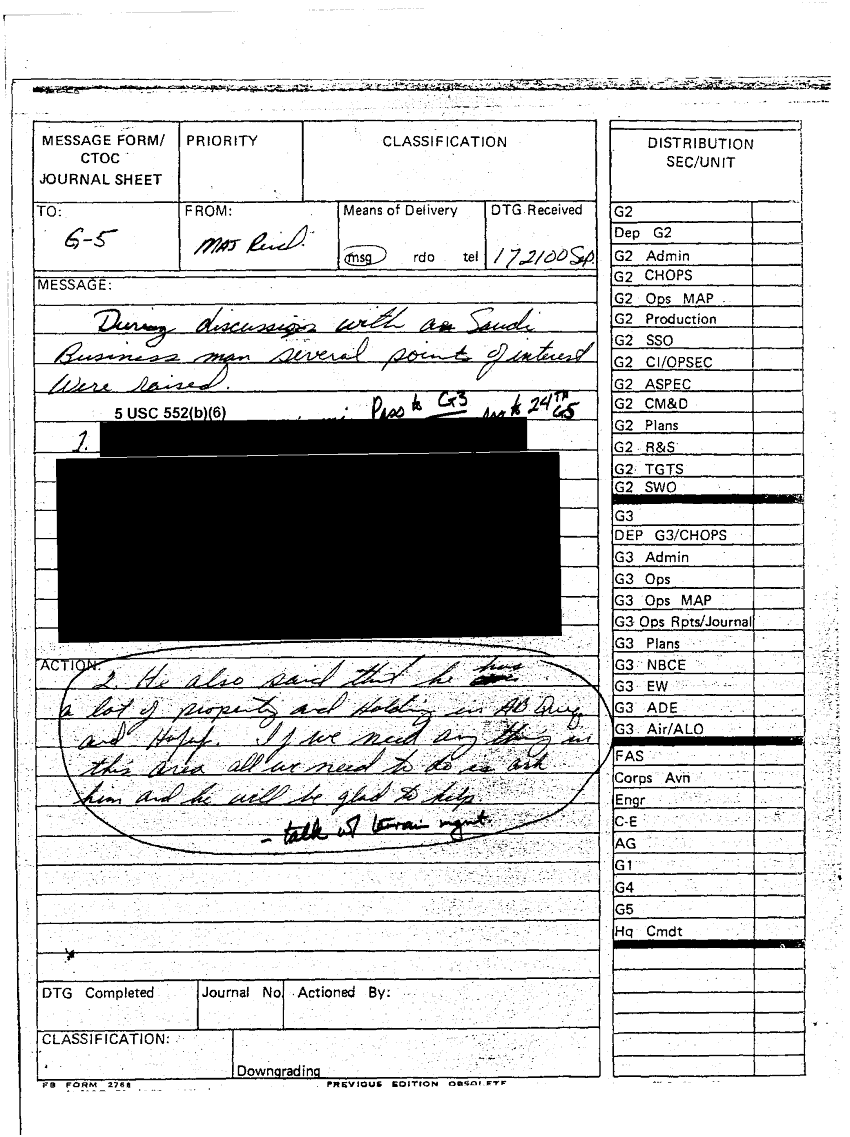 MESSAGE FORM/
CTOC
JOURNAL SHEET
PRIORITY
CLASSIFICATION
TO:
G-5
FROM:
MAJ
Means of Delivery
msg rdo tel
DTG Received
172100 Sep.
MESSAGE:
During discussion with a Saudi
Business man several points of interest
were raised.
5 USC 552(b)(6)
Pass to G3 to 24TH G5
1.
ACTION:
2. He also said that he has
a lot of property and Holding in AB
and Hofuf. If we need any thing in
this area all we need to do is ask
him and he will be glad to help
- talk w/ terrain mgmt.
DTG Completed
Journal No.
Actioned By:
CLASSIFICATION:
Downgrading
FB FORM 2768
PREVIOUS EDITION OBSOLETE
DISTRIBUTION
SEC/UNIT
G2
Dep G2
G2 Admin
G2 CHOPS
G2 Ops MAP
G2 Production
G2 SSO
G2 CI/OPSEC
G2 ASPEC
G2 CM&D
G2 Plans
G2 R&S
G2 TGTS
G2 SWO
G3
DEP G3/CHOPS
G3 Admin
G3 Ops
G3 Ops MAP
G3 Ops Rpts/Journal
G3 Plans
G3 NBCE
G3 EW
G3 ADE
G3 Air/ALO
FAS
Corps Avn
Engr
C-E
AG
G1
G4
G5
Hq Cmdt